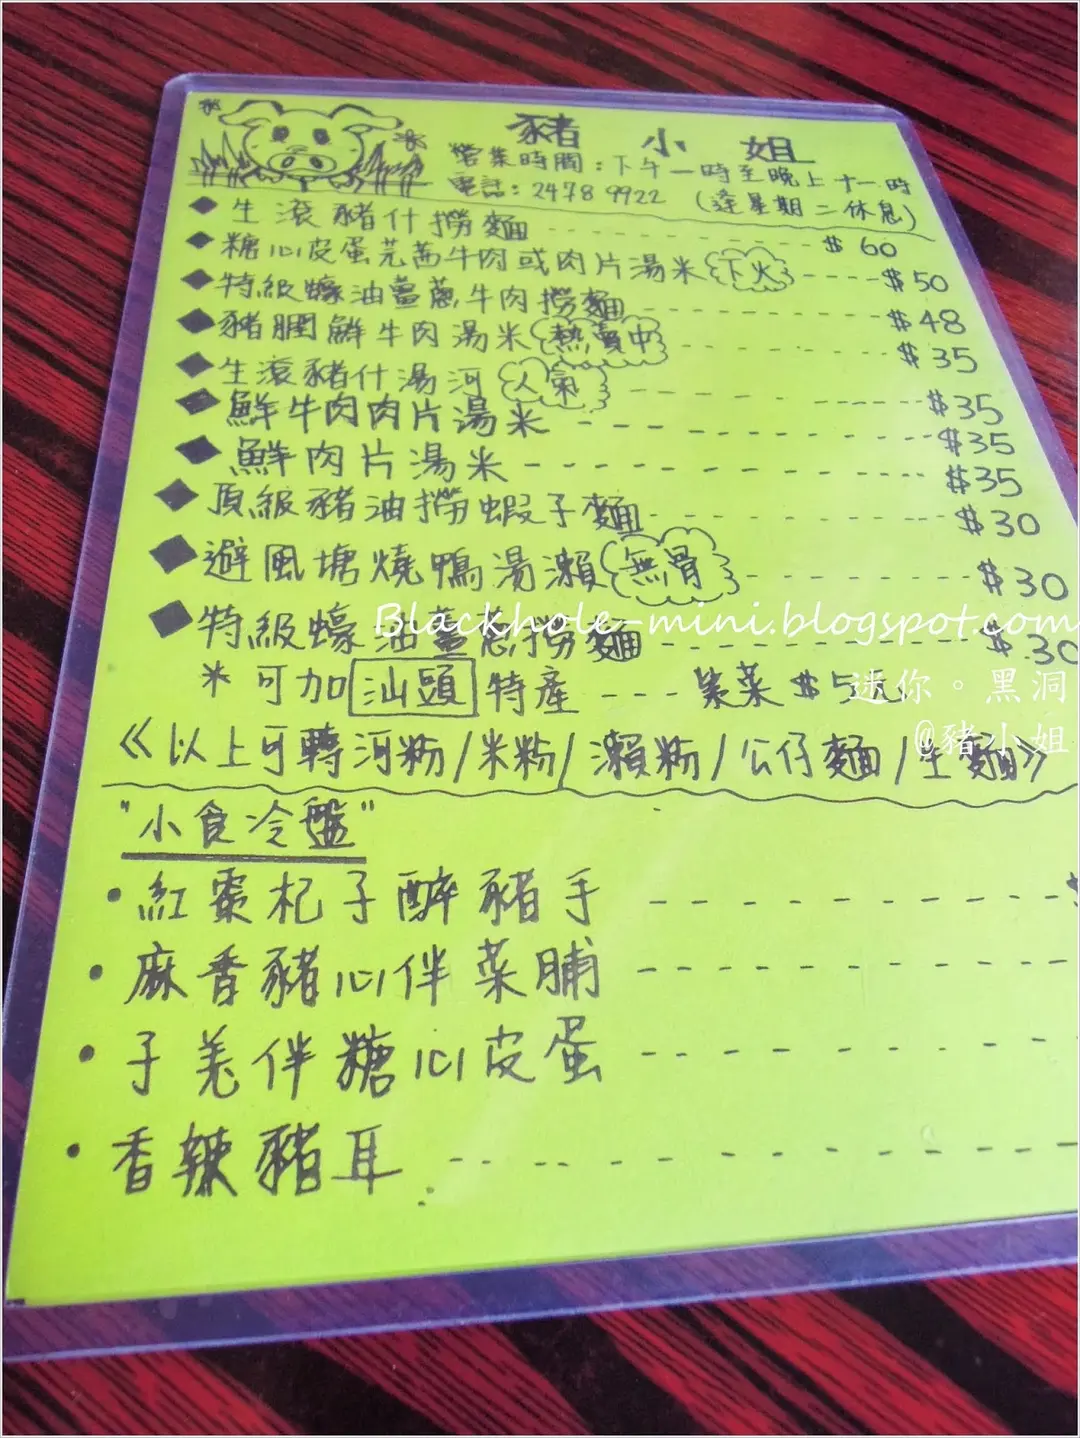 豬小姐
營業時間：下午一時至晚上十一時
電話：2478 9922 (逢星期二休息)
◆ 生滾豬什撈麵 $60
◆ 糖心皮蛋芫茜牛肉或肉片湯米 (下火) $50
◆ 特級蠔油薑蔥牛肉撈麵 $48
◆ 豬膶鮮牛肉湯米 (熱賣中) $35
◆ 生滾豬什湯河 (人氣) $35
◆ 鮮牛肉肉片湯米 $35
◆ 鮮肉片湯米 $35
◆ 頂級豬油撈蝦子麵 $30
◆ 避風塘燒鴨湯瀨 (無骨) $30
◆ 特級蠔油薑蔥撈麵 $30
Blackhole-mini.blogspot.com
* 可加汕頭特產 --- 紫菜 $5元
迷你。黑洞
@豬小姐
《以上可轉河粉/米粉/瀨粉/公仔麵/生麵》
"小食冷盤"
• 紅棗杞子醉豬手
• 麻香豬心伴菜脯
• 子羌伴糖心皮蛋
• 香辣豬耳